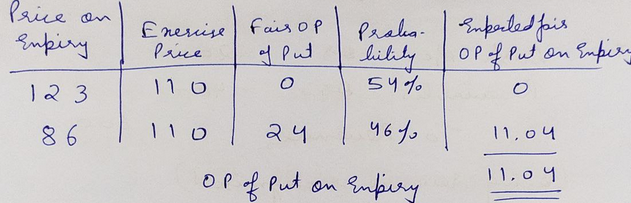 Price on Expiry | Exercise Price | Fair OP of Put | Proba-bility | Expected fair OP of Put on Expiry
123 | 110 | 0 | 54% | 0
86 | 110 | 24 | 46% | 11.04
OP of Put on Expiry 11.04